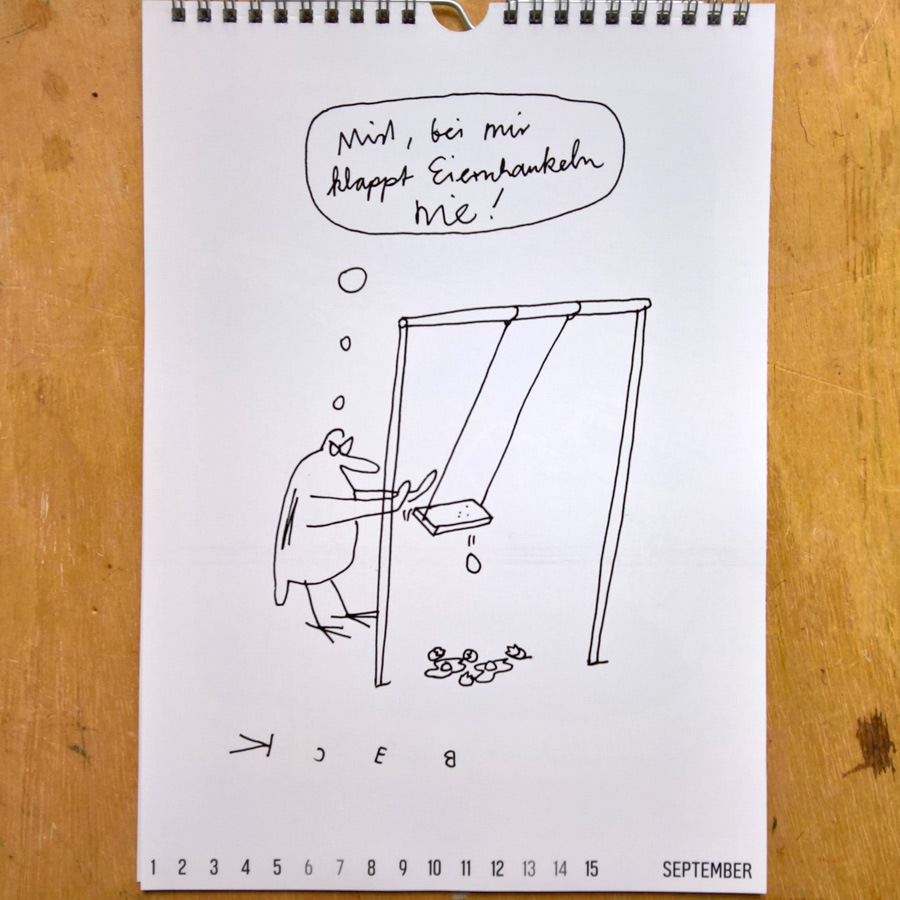 Mist, bei mir
klappt Eierschaukeln
nie!
BECK
1 2 3 4 5 6 7 8 9 10 11 12 13 14 15 SEPTEMBER